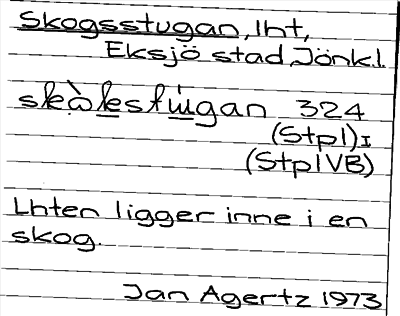 Skogsstugan, lht,
Eksjö stad, Jönk.l.
skὰkestu̇gan 324
(Stpl)I
(StplVB)
Lhten ligger inne i en
skog.
Jan Agertz 1973